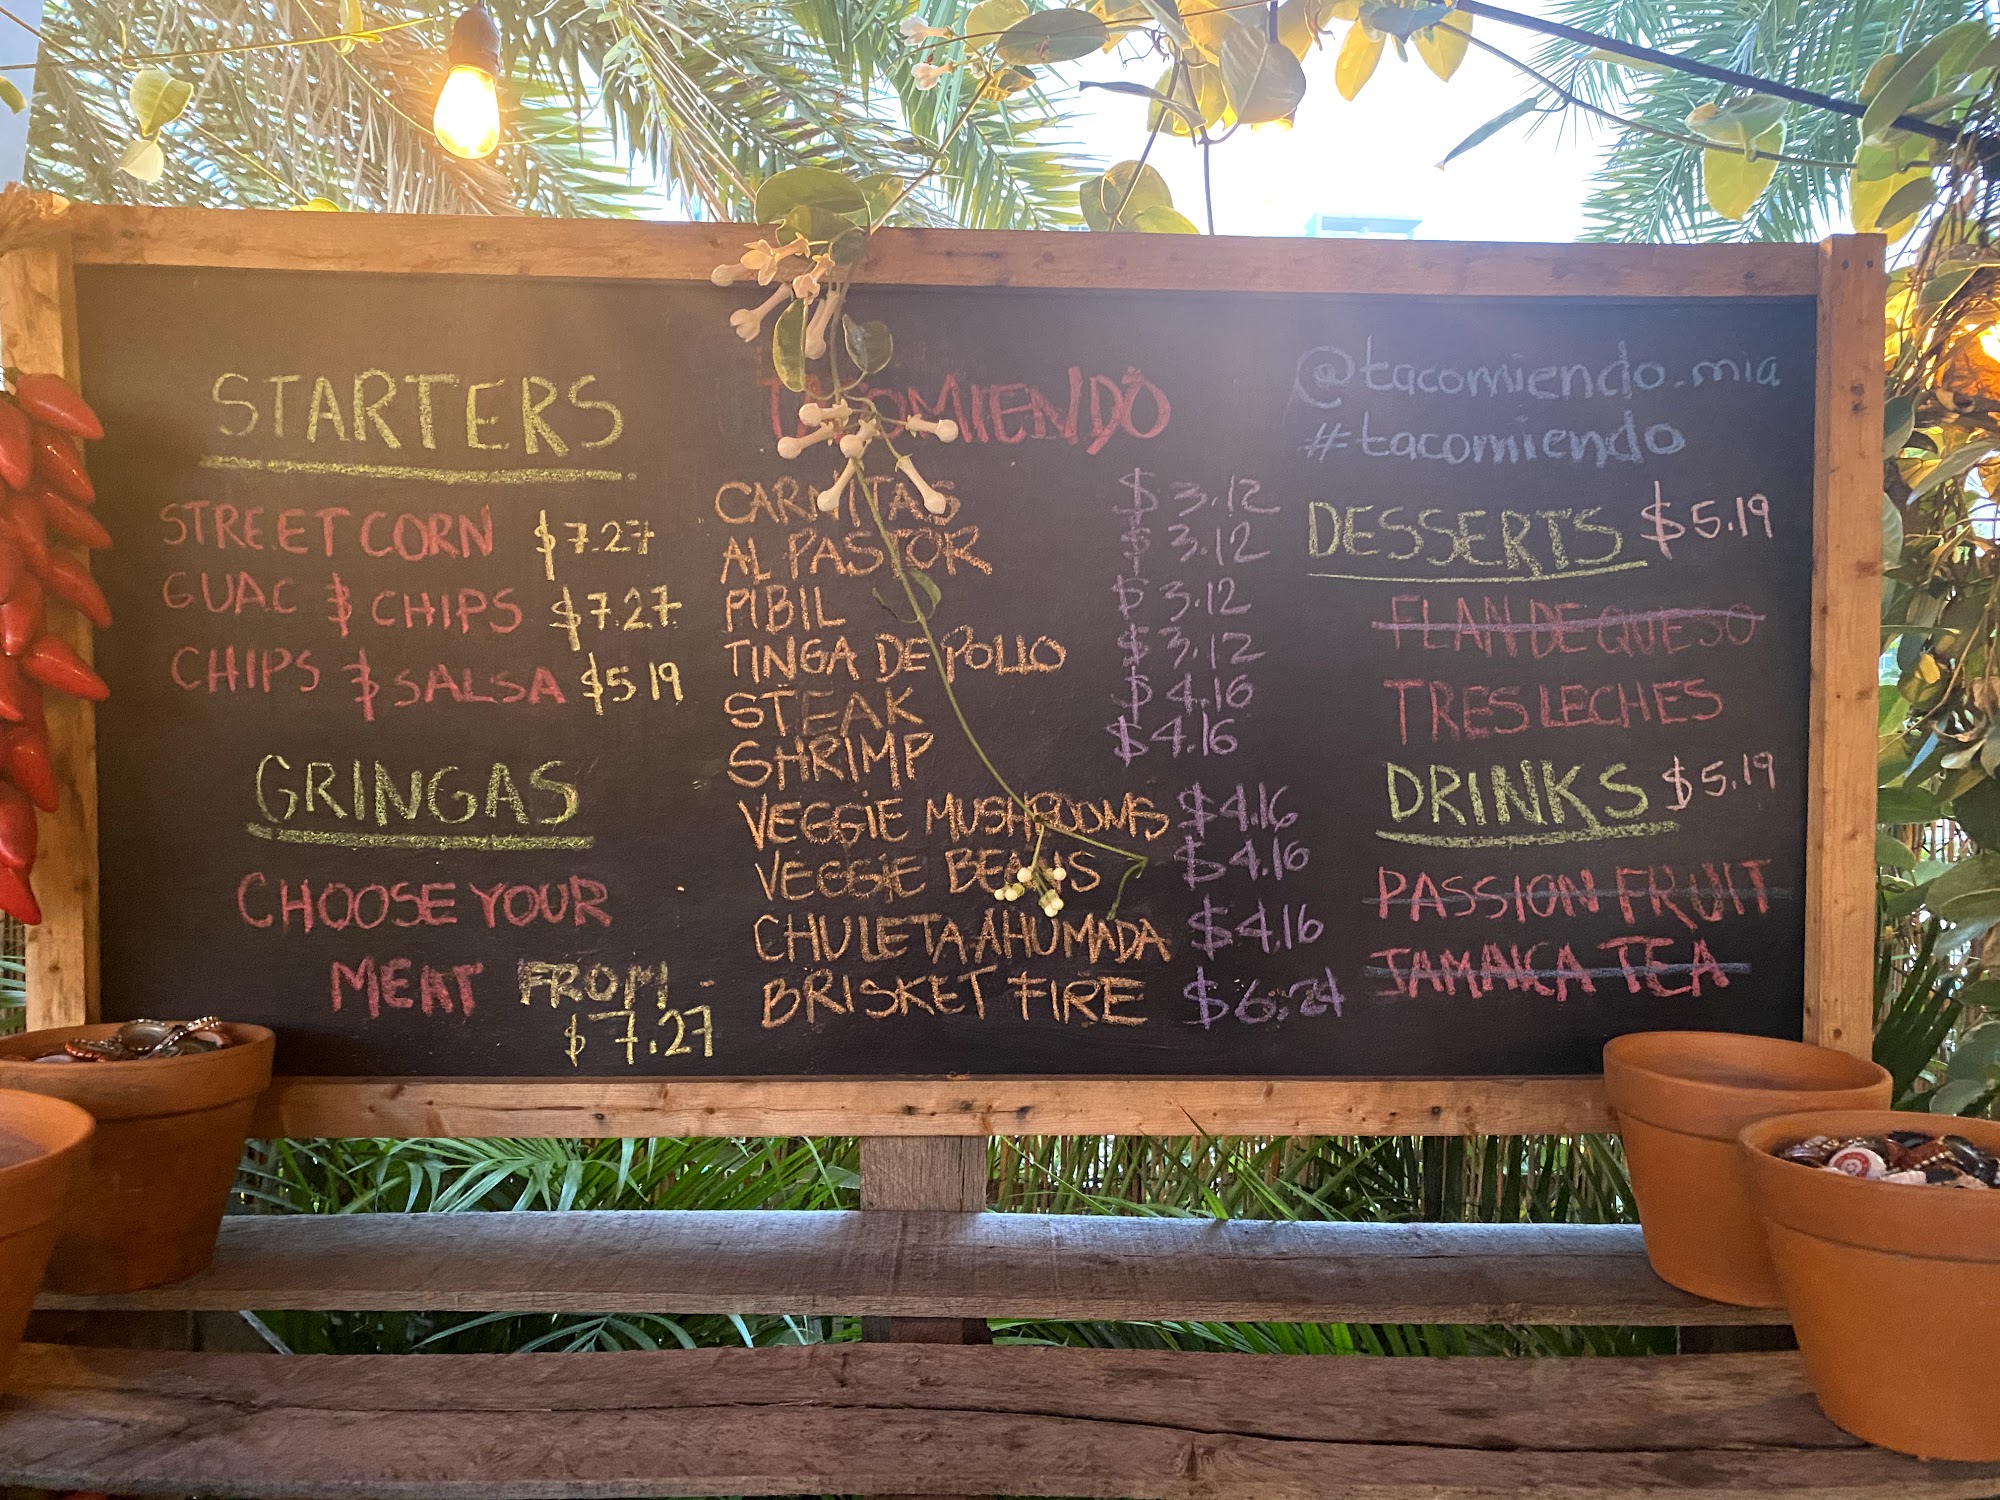 STARTERS
STREET CORN $7.27
GUAC & CHIPS $7.27
CHIPS & SALSA $5.19
GRINGAS
CHOOSE YOUR
MEAT FROM
$7.27
TACOMIENDO
CARNITAS $3.12
AL PASTOR $3.12
PIBIL $3.12
TINGA DE POLLO $3.12
STEAK $4.16
SHRIMP $4.16
VEGGIE MUSHROOMS $4.16
VEGGIE BEANS $4.16
CHULETA AHUMADA $4.16
BRISKET FIRE $6.24
@tacomiendo.mia
#tacomiendo
DESSERTS $5.19
FLAN DE QUESO
TRES LECHES
DRINKS $5.19
PASSION FRUIT
JAMAICA TEA